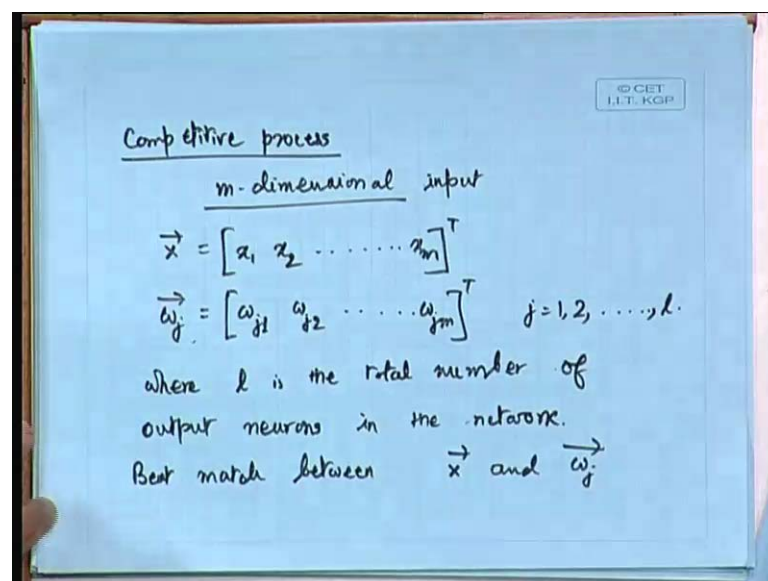 © CET
I.I.T. KGP
Competitive process
m-dimensional input
x⃗ = [x₁ x₂ ........ xₘ]ᵀ
ω⃗ⱼ = [ωⱼ₁ ωⱼ₂ ...... ωⱼₘ]ᵀ j=1,2, ....., l.
where l is the total number of
output neurons in the network.
Best match between x⃗ and ω⃗ⱼ